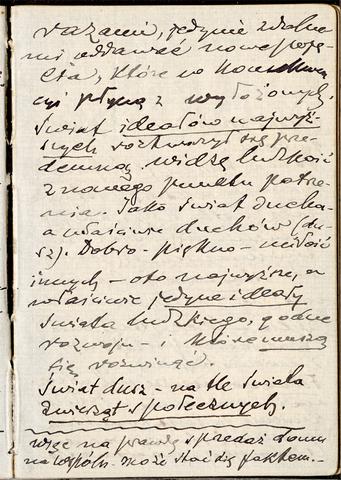 razami, jedynie zdolne-
mi oddawać nowe poję-
cia, które w konsekwen-
cyi płyną z wyłożonych.
Świat ideałów najwyż-
szych roztworzył się prze-
demną. widzę ludzkość
z nowego punktu patrze-
nia. Jako świat ducha-
a właściwie duchów (du-
sz). Dobro - piękno - miłość
innych - oto najwyższe, a
właściwie jedyne ideały
świata ludzkiego, godne
rozwoju - i które muszą
się rozwinąć.
Świat dusz - na tle świata
zwierząt społecznych.
więc na prawdę sprzedaż domu
na wspóln. może stać się faktem.-